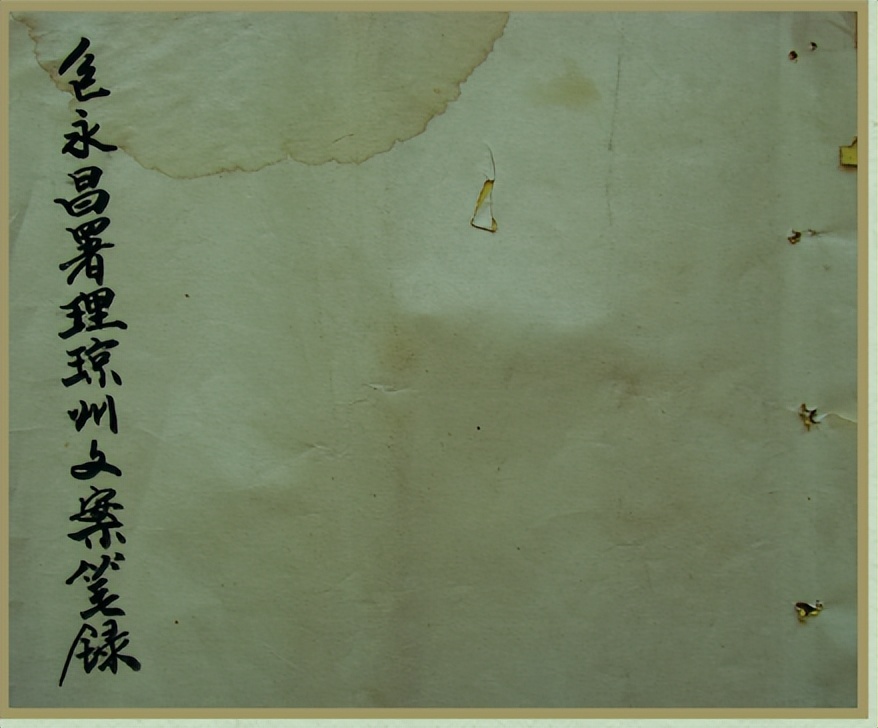 包永昌署理琼州文案笔录